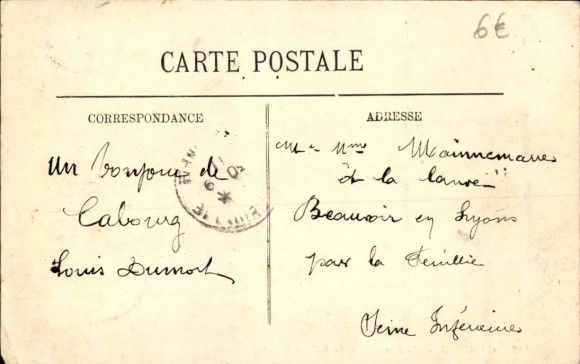 6€
CARTE POSTALE
CORRESPONDANCE
ADRESSE
Un bonjour de
Cabourg
Louis Dumont
Mr Mme
à la
Beauvoir en Lyons
par la Feuillie
Seine Inférieure